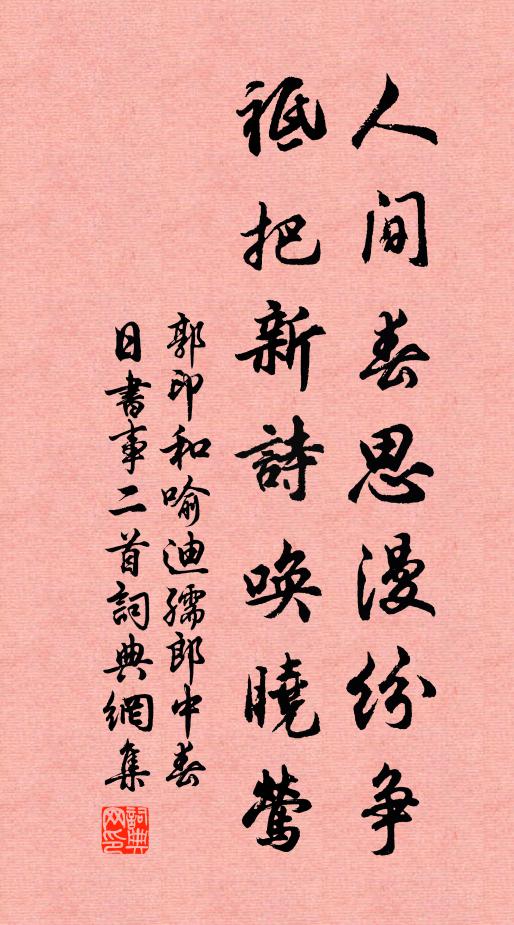 人间春思漫纷争
祗把新詩唤曉莺
郭印和喻迪孺郎中春
日書事二首詞典網集
詞典網印